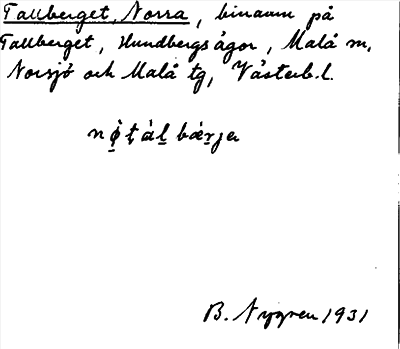 Tallberget, Norra, binamn på
Tallberget, Hundbergs ägor, Malå sn,
Norsjö och Malå tg, Västerb.l.
nǫ̀ṭ ál bæ̀rjer
B. Nygren 1931